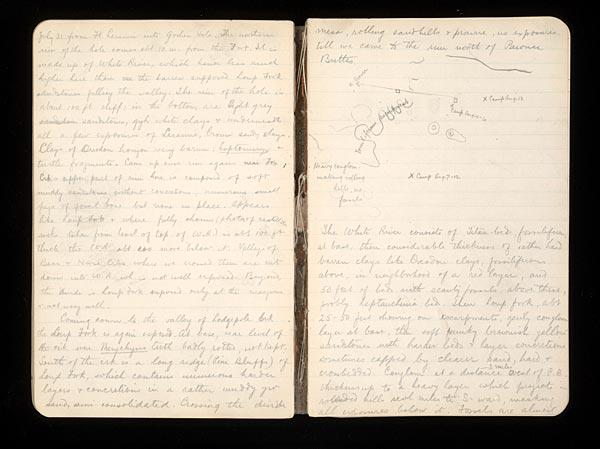 July 31 from Ft Laramie into Goshen Hole. The northern
rim of the hole comes abt 10 m. from the Fort. It is
made up of White River, which hence lies much
higher here than the barren supposed Loup Fork
sandstones filling the valley. The rim of the hole is
about 100 ft cliff. in the bottom, are light grey
sandstones, with white clays & underneath
all a few exposures of brown sandy clays.
Clays of Oreodon horizon very barren. Leptomeryx &
turtle fragments. Came up over rim again near Fox
Crk upper part of rim here is composed of soft
muddy sandstones without concretions, numerous small
pcs of fossil bone but none in place. Appears
like Loup Fork & where fully shown (photos of
taken from level of top of W.R.) is abt 100 ft
thick the W.R. abt 200 more below it. Valleys of
Bear & Horse Crks where we crossed them are cut
down into W.R. wh. is not well exposed. Beyond
the divide is Loup Fork exposed only at the
& not very well.
Coming down to the valley of Lodgepole Crk
the Loup Fork is again exposed. its base, near level of
the crk. One Merychyus teeth badly rotted, not kept.
South of the crk is a long ridge (Pine Bluffs) of
Loup Fork, which contains numerous harder
layers & concretions in a rather muddy gr
sand, semi consolidated. Crossing the divide
mesa, rolling sandhills & prairie, no exposures
till we came to the rim north of Pawnee
Buttes.
X Camp Aug. 13
Camp
Heavy conglom.
making rolling
hills, no
fossils
X Camp Aug 7-12
The White River consists of Titan. bed fossiliferous
at base, then considerable thickness of rather hard
barren clays like Oreodon clays, fossiliferous
above, in neighborhood of a red layer, and
50 feet of beds with scanty fossils above these,
probly Leptauchenia bed. Then Loup fork, abt
25-50 feet showing on escarpments, partly conglom
layer at base, then soft brownish yellow
sandstones with harder beds & layer concretions
sometimes capped by clearer hard, hard &
crossbedded. Conglom. at a distance 3 miles West of P.B.
thickens up to a heavy layer which projects in
rounded hills sevl miles to S. ward, masking
all exposures below it. Fossils are almost